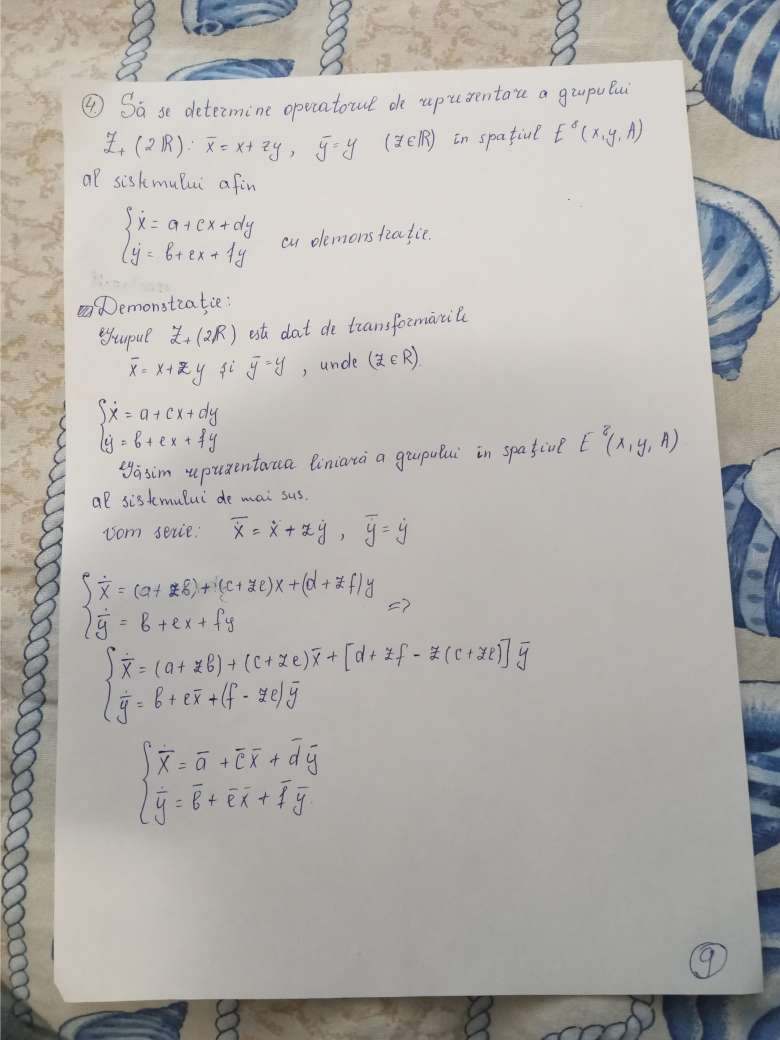 4. Să se determine operatorul de reprezentare a grupului
Z₊(2ℝ): x̄ = x + zy, ȳ = y (z∈ℝ) în spațiul E⁸(x,y,A)
al sistemului afin
{ẋ = a + cx + dy
{ẏ = b + ex + fy cu demonstrație.
Demonstrație:
Grupul Z₊(2ℝ) este dat de transformările
x̄ = x + zy și ȳ = y, unde (z∈ℝ).
{ẋ = a + cx + dy
{ẏ = b + ex + fy
Găsim reprezentarea liniară a grupului în spațiul E⁸(x,y,A)
al sistemului de mai sus.
Vom serie: x̄̇ = ẋ + zẏ, ȳ̇ = ẏ
{x̄̇ = (a + zb) + (c + ze)x + (d + zf)y
{ȳ̇ = b + ex + fy =>
{x̄̇ = (a + zb) + (c + ze)x̄ + [d + zf - z(c + ze)]ȳ
{ȳ̇ = b + ex̄ + (f - ze)ȳ
{x̄̇ = ā + c̄x̄ + d̄ȳ
{ȳ̇ = b̄ + ēx̄ + f̄ȳ.
9